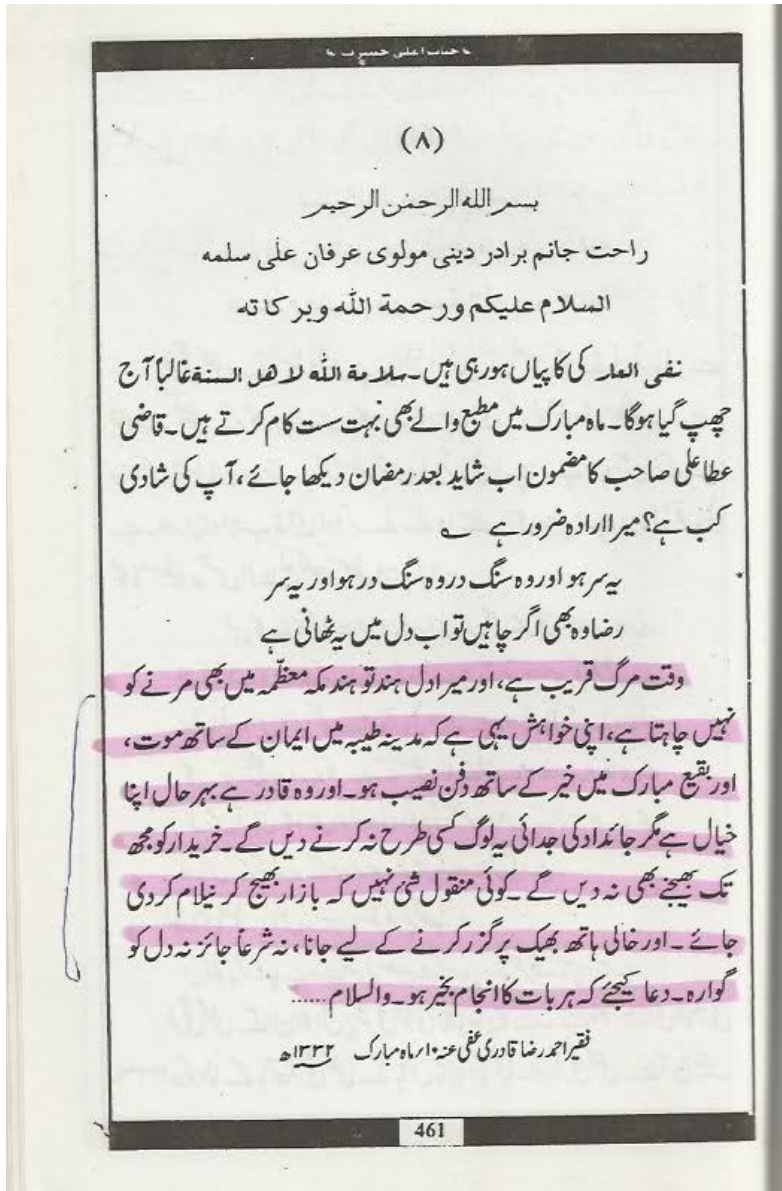 حیات اعلیٰ حضرت
(۸)
بسم الله الرحمن الرحيم
راحت جانم برادر دینی مولوی عرفان علی سلمه
السلام علیکم ورحمة الله وبركاته
نفی العار کی کاپیاں ہو رہی ہیں۔ سلامة الله لاهل السنة غالباً آج
چھپ گیا ہوگا۔ ماہ مبارک میں مطبع والے بھی بہت سست کام کرتے ہیں۔ قاضی
عطا علی صاحب کا مضمون اب شاید بعد رمضان دیکھا جائے، آپ کی شادی
کب ہے؟ میرا ارادہ ضرور ہے ؎
یہ سر ہو اور وہ سنگ در وہ سنگ در ہو اور یہ سر
رضا وہ بھی اگر چاہیں تو اب دل میں یہ ٹھانی ہے
وقت مرگ قریب ہے، اور میرا دل ہند تو ہند مکہ معظّمہ میں بھی مرنے کو
نہیں چاہتا ہے، اپنی خواہش یہی ہے کہ مدینہ طیبہ میں ایمان کے ساتھ موت،
اور بقیع مبارک میں خیر کے ساتھ دفن نصیب ہو۔ اور وہ قادر ہے بہر حال اپنا
خیال ہے مگر جائداد کی جدائی یہ لوگ کسی طرح نہ کرنے دیں گے۔ خریدار کو مجھ
تک بھیجنے بھی نہ دیں گے۔ کوئی منقول شئ نہیں کہ بازار بھیج کر نیلام کردی
جائے۔ اور خالی ہاتھ بھیک پر گزر کرنے کے لیے جانا، نہ شرعاً جائز نہ دل کو
گوارہ۔ دعا کیجئے کہ ہر بات کا انجام بخیر ہو۔ والسلام......
فقیر احمد رضا قادری عفی عنہ ۱۰/ماہ مبارک ۱۳۳۲ھ
461